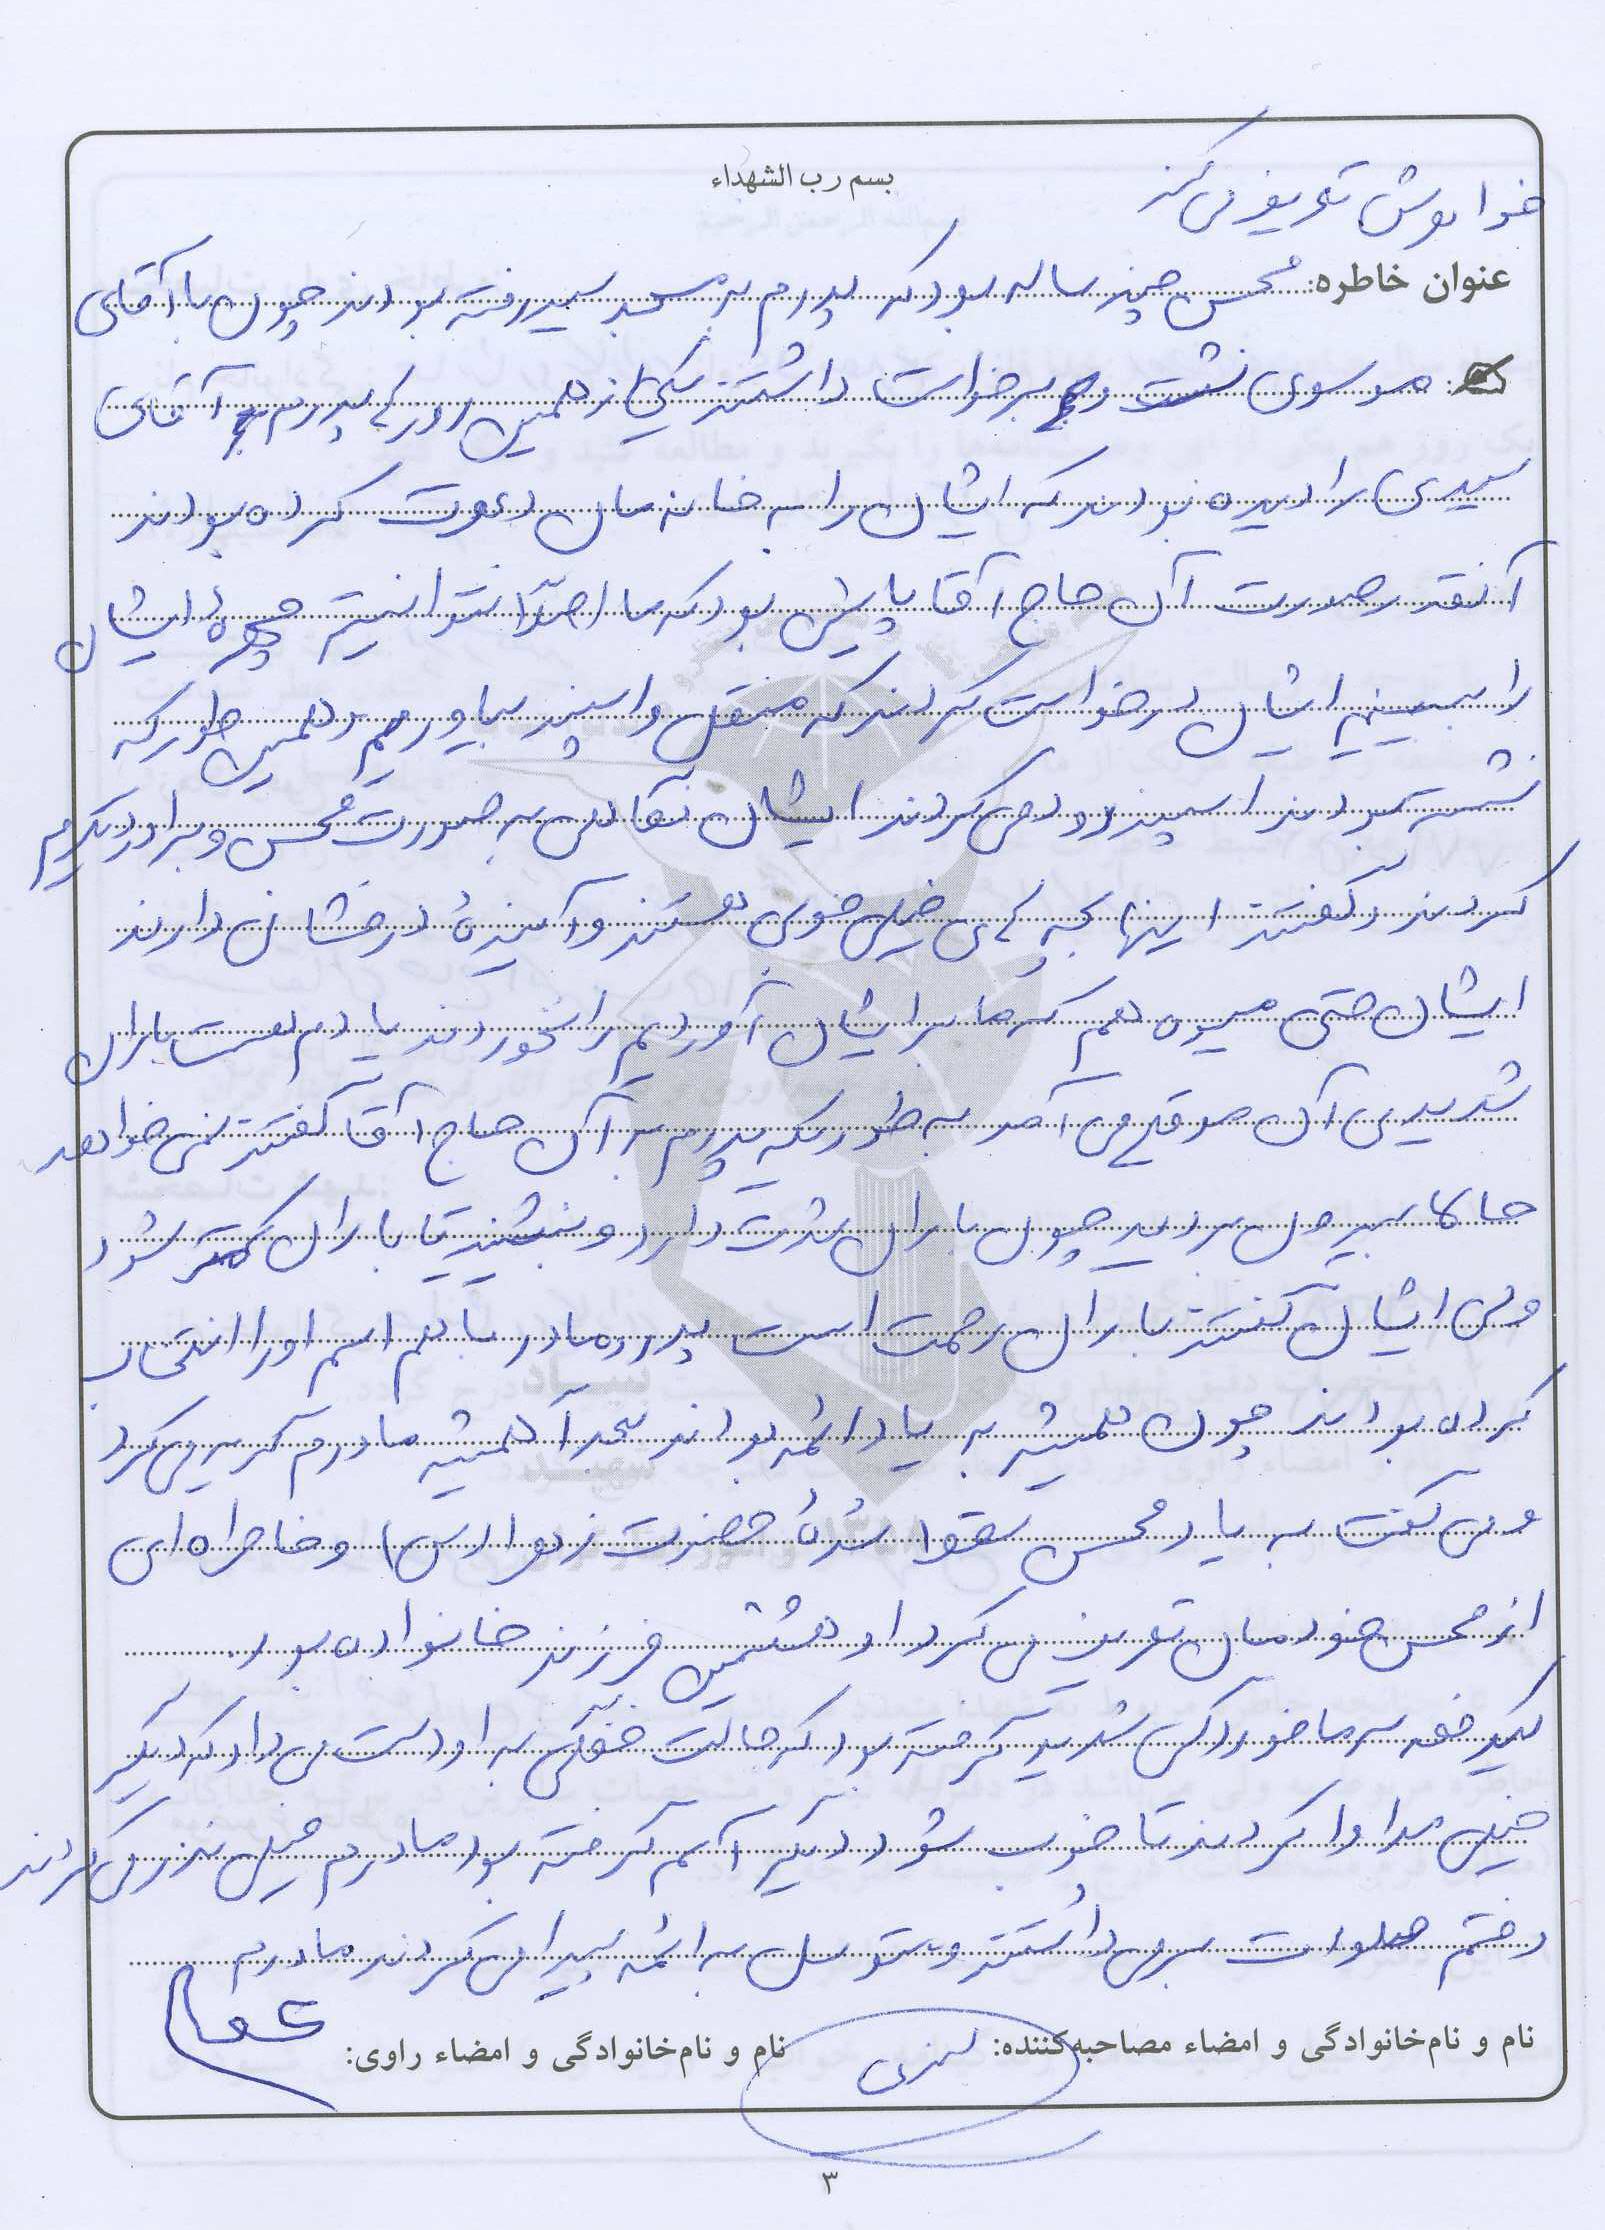 بسم رب الشهداء
خواهرش تعریف می کند
عنوان خاطره: محسن چند ساله بود که پدرم به مسجد سید رفته بودند چون با آقای
موسوی نشست و برخواست داشتند یکی از همین روزها پدرم آقای
سیدی را دیده بودند که ایشان را به خانه مان دعوت کرده بودند
آنقدر صورت آن حاج آقا پایین بود که ما اصلاً نتوانستیم چهرهٔ ایشان
را ببینیم ایشان درخواست کردند که منقل و اسپند بیاوریم و همین طور که
نشسته بودند اسپند دود می کردند ایشان نگاهی به صورت محسن و برادر دیگرم
کردند و گفتند اینها بچه های خیلی خوبی هستند و آیندهٔ درخشانی دارند
ایشان حتی میوه هم که ما برایشان آوردیم را نخوردند یادم هست باران
شدیدی آن موقع می آمد به طوریکه پدرم به آن حاج آقا گفتند نمی خواهد
حالا بیرون بروید چون باران شدت دارد و بنشینید تا باران کمتر شود
ولی ایشان گفتند باران رحمت است پدر و مادر با هم اسم او را انتخاب
کرده بودند چون همیشه به یاد ائمه بودند بعداً همیشه مادرم گریه می کرد
و می گفت به یاد محسن سقط شدهٔ حضرت زهرا (س) و خاطره ای
از محسن خودمان تعریف می کرد او هشتمین فرزند خانواده بود.
یکدفعه سرماخوردگی شدید گرفته بود که حالت خفگی به او دست می داد که دیگر
خیلی مداوا کردند تا خوب شود دیگر آسم گرفته بود مادرم خیلی نذر می کردند
و ختم صلوات برمی داشتند و توسل به ائمه پیدا می کردند مادرم
نام و نام‌خانوادگی و امضاء مصاحبه‌کننده:
نام و نام‌خانوادگی و امضاء راوی:
۳